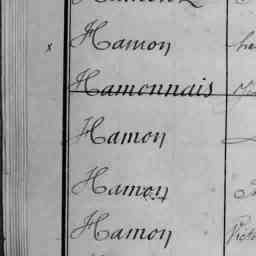 x Hamon
Hamonnais
Hamon
Hamon
Hamon